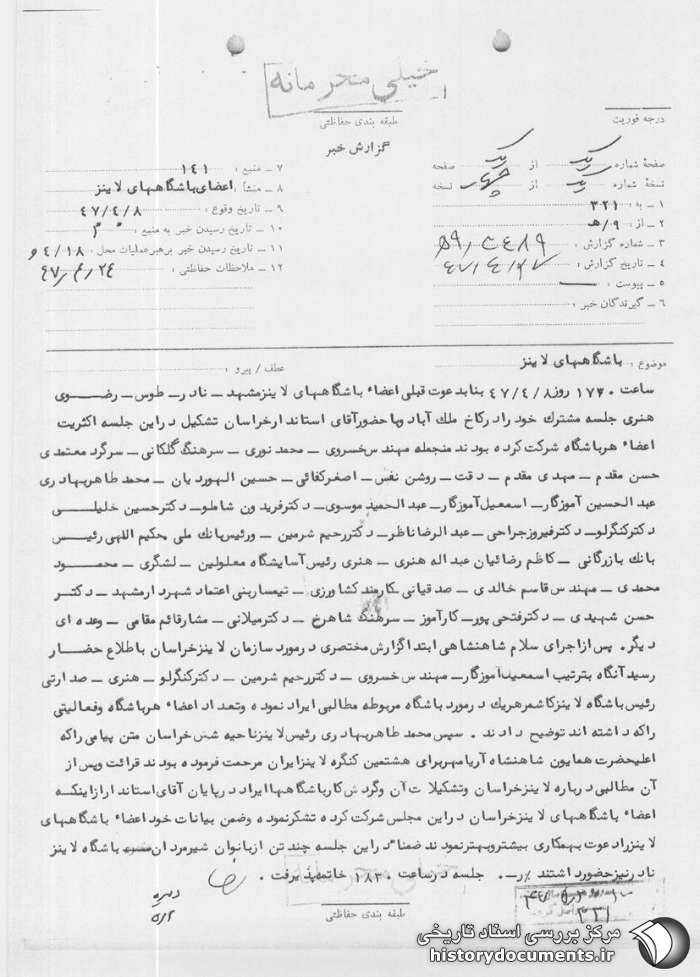 خیلی محرمانه
طبقه بندی حفاظتی
گزارش خبر
درجه فوریت
صفحهٔ شماره یک از یک صفحه
نسخهٔ شماره یک از چهار نسخه
۱ ـ به : ۳۲۱
۲ ـ از : ۹/ﻫ
۳ ـ شماره گزارش :
۴ ـ تاریخ گزارش :
۵ ـ پیوست :
۶ ـ گیرندگان خبر :
۷ ـ منبع : ۱۴۱
۸ ـ منشأ : اعضای باشگاههای لاینز
۹ ـ تاریخ وقوع : ۴۷/۴/۸
۱۰ ـ تاریخ رسیدن خبر به منبع :
۱۱ ـ تاریخ رسیدن خبر برهبر عملیات محل : ۴/۱۸
۱۲ ـ ملاحظات حفاظتی :
موضوع : باشگاههای لاینز
عطف / پیرو :
ساعت ۱۷۳۰ روز ۴۷/۴/۸ بنابدعوت قبلی اعضاء باشگاههای لاینزمشهد ـ نادر ـ طوس ـ رضوی
هنری جلسه مشترك خود رادرکاخ ملك آباد وباحضورآقای استاندارخراسان تشکیل دراین جلسه اکثریت
اعضاء هرباشگاه شرکت کرده بودند منجمله مهندس خسروی ـ محمد نوری ـ سرهنگ گلکانی ـ سرگرد معتمدی
حسن مقدم ـ مهدی مقدم ـ دقت ـ روشن نفس ـ اصغرکفائی ـ حسین الهوردیان ـ محمد طاهربهادری
عبدالحسین آموزگار ـ اسمعیل آموزگار ـ عبدالحمید موسوی ـ دکترفریدون شاملو ـ دکترحسین خلیلی
دکترکنگرلو ـ دکترفیروزجراحی ـ عبدالرضاناظر ـ دکتررحیم شرمین ـ ورئیس بانك ملی حکیم اللهی رئیس
بانك بازرگانی ـ کاظم رضائیان عبداله هنری ـ هنری رئیس آسایشگاه معلولین ـ لشگری ـ محمود
محمدی ـ مهندس قاسم خالدی ـ صدقیانی کارمند کشاورزی ـ تیمساربنی اعتماد شهردارمشهد ـ دکتر
حسن شهیدی ـ دکترفتحی پور ـ کارآموز ـ سرهنگ شاهرخ ـ دکترمیلانی ـ مشارقائم مقامی ـ وعده ای
دیگر. پس ازاجرای سلام شاهنشاهی ابتداگزارش مختصری درمورد سازمان لاینزخراسان باطلاع حضار
رسیدآنگاه بترتیب اسمعیل آموزگار ـ مهندس خسروی ـ دکتررحیم شرمین ـ دکترکنگرلو ـ هنری ـ صدارتی
رئیس باشگاه لاینزکاشمرهریك درمورد باشگاه مربوطه مطالبی ایرادنموده وتعداد اعضاء هرباشگاه وفعالیتی
راکه داشته اند توضیح دادند . سپس محمد طاهربهادری رئیس لاینزناحیه شش خراسان متن پیامی راکه
اعلیحضرت همایون شاهنشاه آریامهربرای هشتمین کنگره لاینزایران مرحمت فرموده بودند قرائت وپس از
آن مطالبی درباره لاینزخراسان وتشکیلات آن وگردش کارباشگاهها ایراد درپایان آقای استاندارازاینکه
اعضاء باشگاههای لاینزخراسان دراین مجلس شرکت کرده تشکرنموده وضمن بیانات خود اعضاء باشگاههای
لاینزرادعوت بهمکاری بیشتروبهترنمودند ضمنا دراین جلسه چندتن ازبانوان شیرمردان باشگاه لاینز
نادرنیزحضورداشتند . جلسه درساعت ۱۸۳۰ خاتمه پذیرفت .
خیلی محرمانه
طبقه بندی حفاظتی
مرکز بررسی اسناد تاریخی
historydocuments.ir